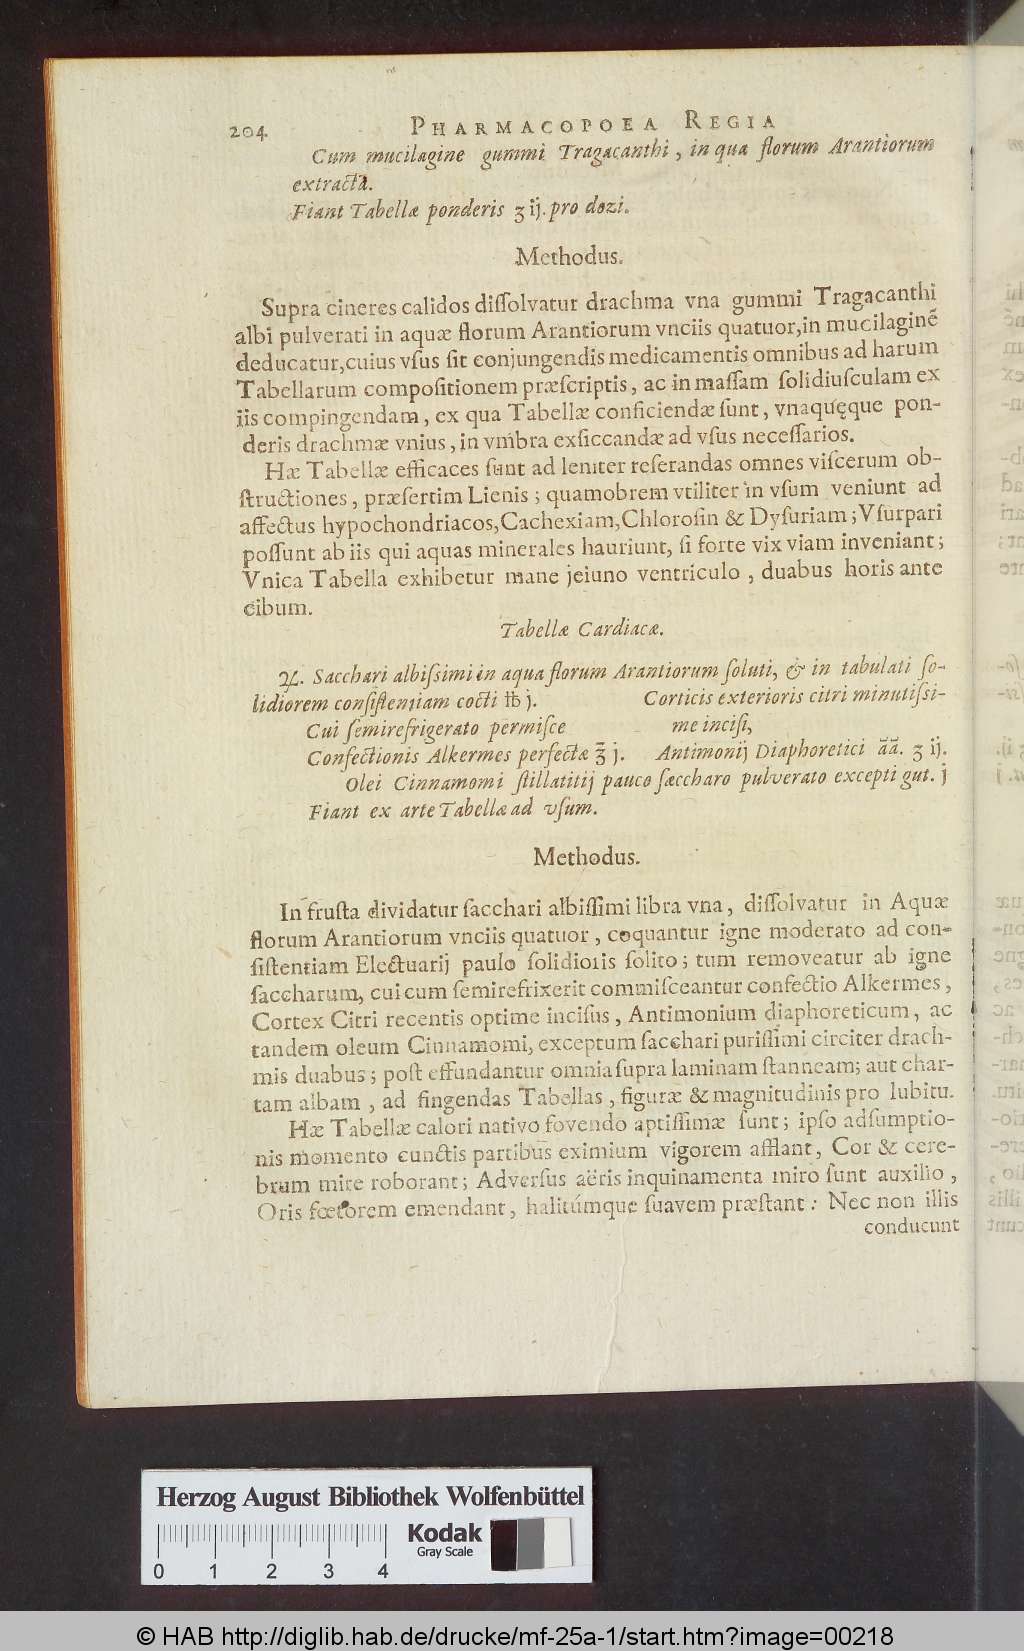 204 PHARMACOPOEA REGIA
Cum mucilagine gummi Tragacanthi, in qua florum Arantiorum
extracta.
Fiant Tabellæ ponderis ʒ ij. pro dozi.
Methodus.
Supra cineres calidos diſſolvatur drachma vna gummi Tragacanthi
albi pulverati in aquæ florum Arantiorum vnciis quatuor, in mucilaginẽ
deducatur, cuius vſus ſit conjungendis medicamentis omnibus ad harum
Tabellarum compoſitionem præſcriptis, ac in maſſam ſolidiuſculam ex
iis compingendam, ex qua Tabellæ conficiendæ ſunt, vnaquęque pon-
deris drachmæ vnius, in vmbra exſiccandæ ad vſus neceſſarios.
Hæ Tabellæ efficaces ſunt ad leniter reſerandas omnes viſcerum ob-
ſtructiones, præſertim Lienis; quamobrem vtiliter in vſum veniunt ad
affectus hypochondriacos, Cachexiam, Chloroſin & Dyſuriam; Vſurpari
poſſunt ab iis qui aquas minerales hauriunt, ſi forte vix viam inveniant;
Vnica Tabella exhibetur mane jeiuno ventriculo, duabus horis ante
cibum.
Tabellæ Cardiacæ.
♃. Sacchari albiſsimi in aqua florum Arantiorum ſoluti, & in tabulati ſo-
lidiorem conſiſtentiam cocti ℔ j. Corticis exterioris citri minutiſsi-
Cui ſemirefrigerato permiſce me inciſi,
Confectionis Alkermes perfectæ ℥ j. Antimonij Diaphoretici ãã. ʒ ij.
Olei Cinnamomi ſtillatitij pauco ſaccharo pulverato excepti gut. j
Fiant ex arte Tabellæ ad vſum.
Methodus.
In fruſta dividatur ſacchari albiſſimi libra vna, diſſolvatur in Aquæ
florum Arantiorum vnciis quatuor, coquantur igne moderato ad con-
ſiſtentiam Electuarij paulo ſolidioris ſolito; tum removeatur ab igne
ſaccharum, cui cum ſemirefrixerit commiſceantur confectio Alkermes,
Cortex Citri recentis optime inciſus, Antimonium diaphoreticum, ac
tandem oleum Cinnamomi, exceptum ſacchari puriſſimi circiter drach-
mis duabus; poſt effundantur omnia ſupra laminam ſtanneam; aut char-
tam albam, ad fingendas Tabellas, figuræ & magnitudinis pro lubitu.
Hæ Tabellæ calori nativo fovendo aptiſſimæ ſunt; ipſo adſumptio-
nis momento cunctis partibus eximium vigorem afflant, Cor & cere-
brum mire roborant; Adverſus aëris inquinamenta miro ſunt auxilio,
Oris fœtorem emendant, halitúmque ſuavem præſtant: Nec non illis
conducunt
Herzog August Bibliothek Wolfenbüttel
Kodak
Gray Scale
0 1 2 3 4
© HAB http://diglib.hab.de/drucke/mf-25a-1/start.htm?image=00218